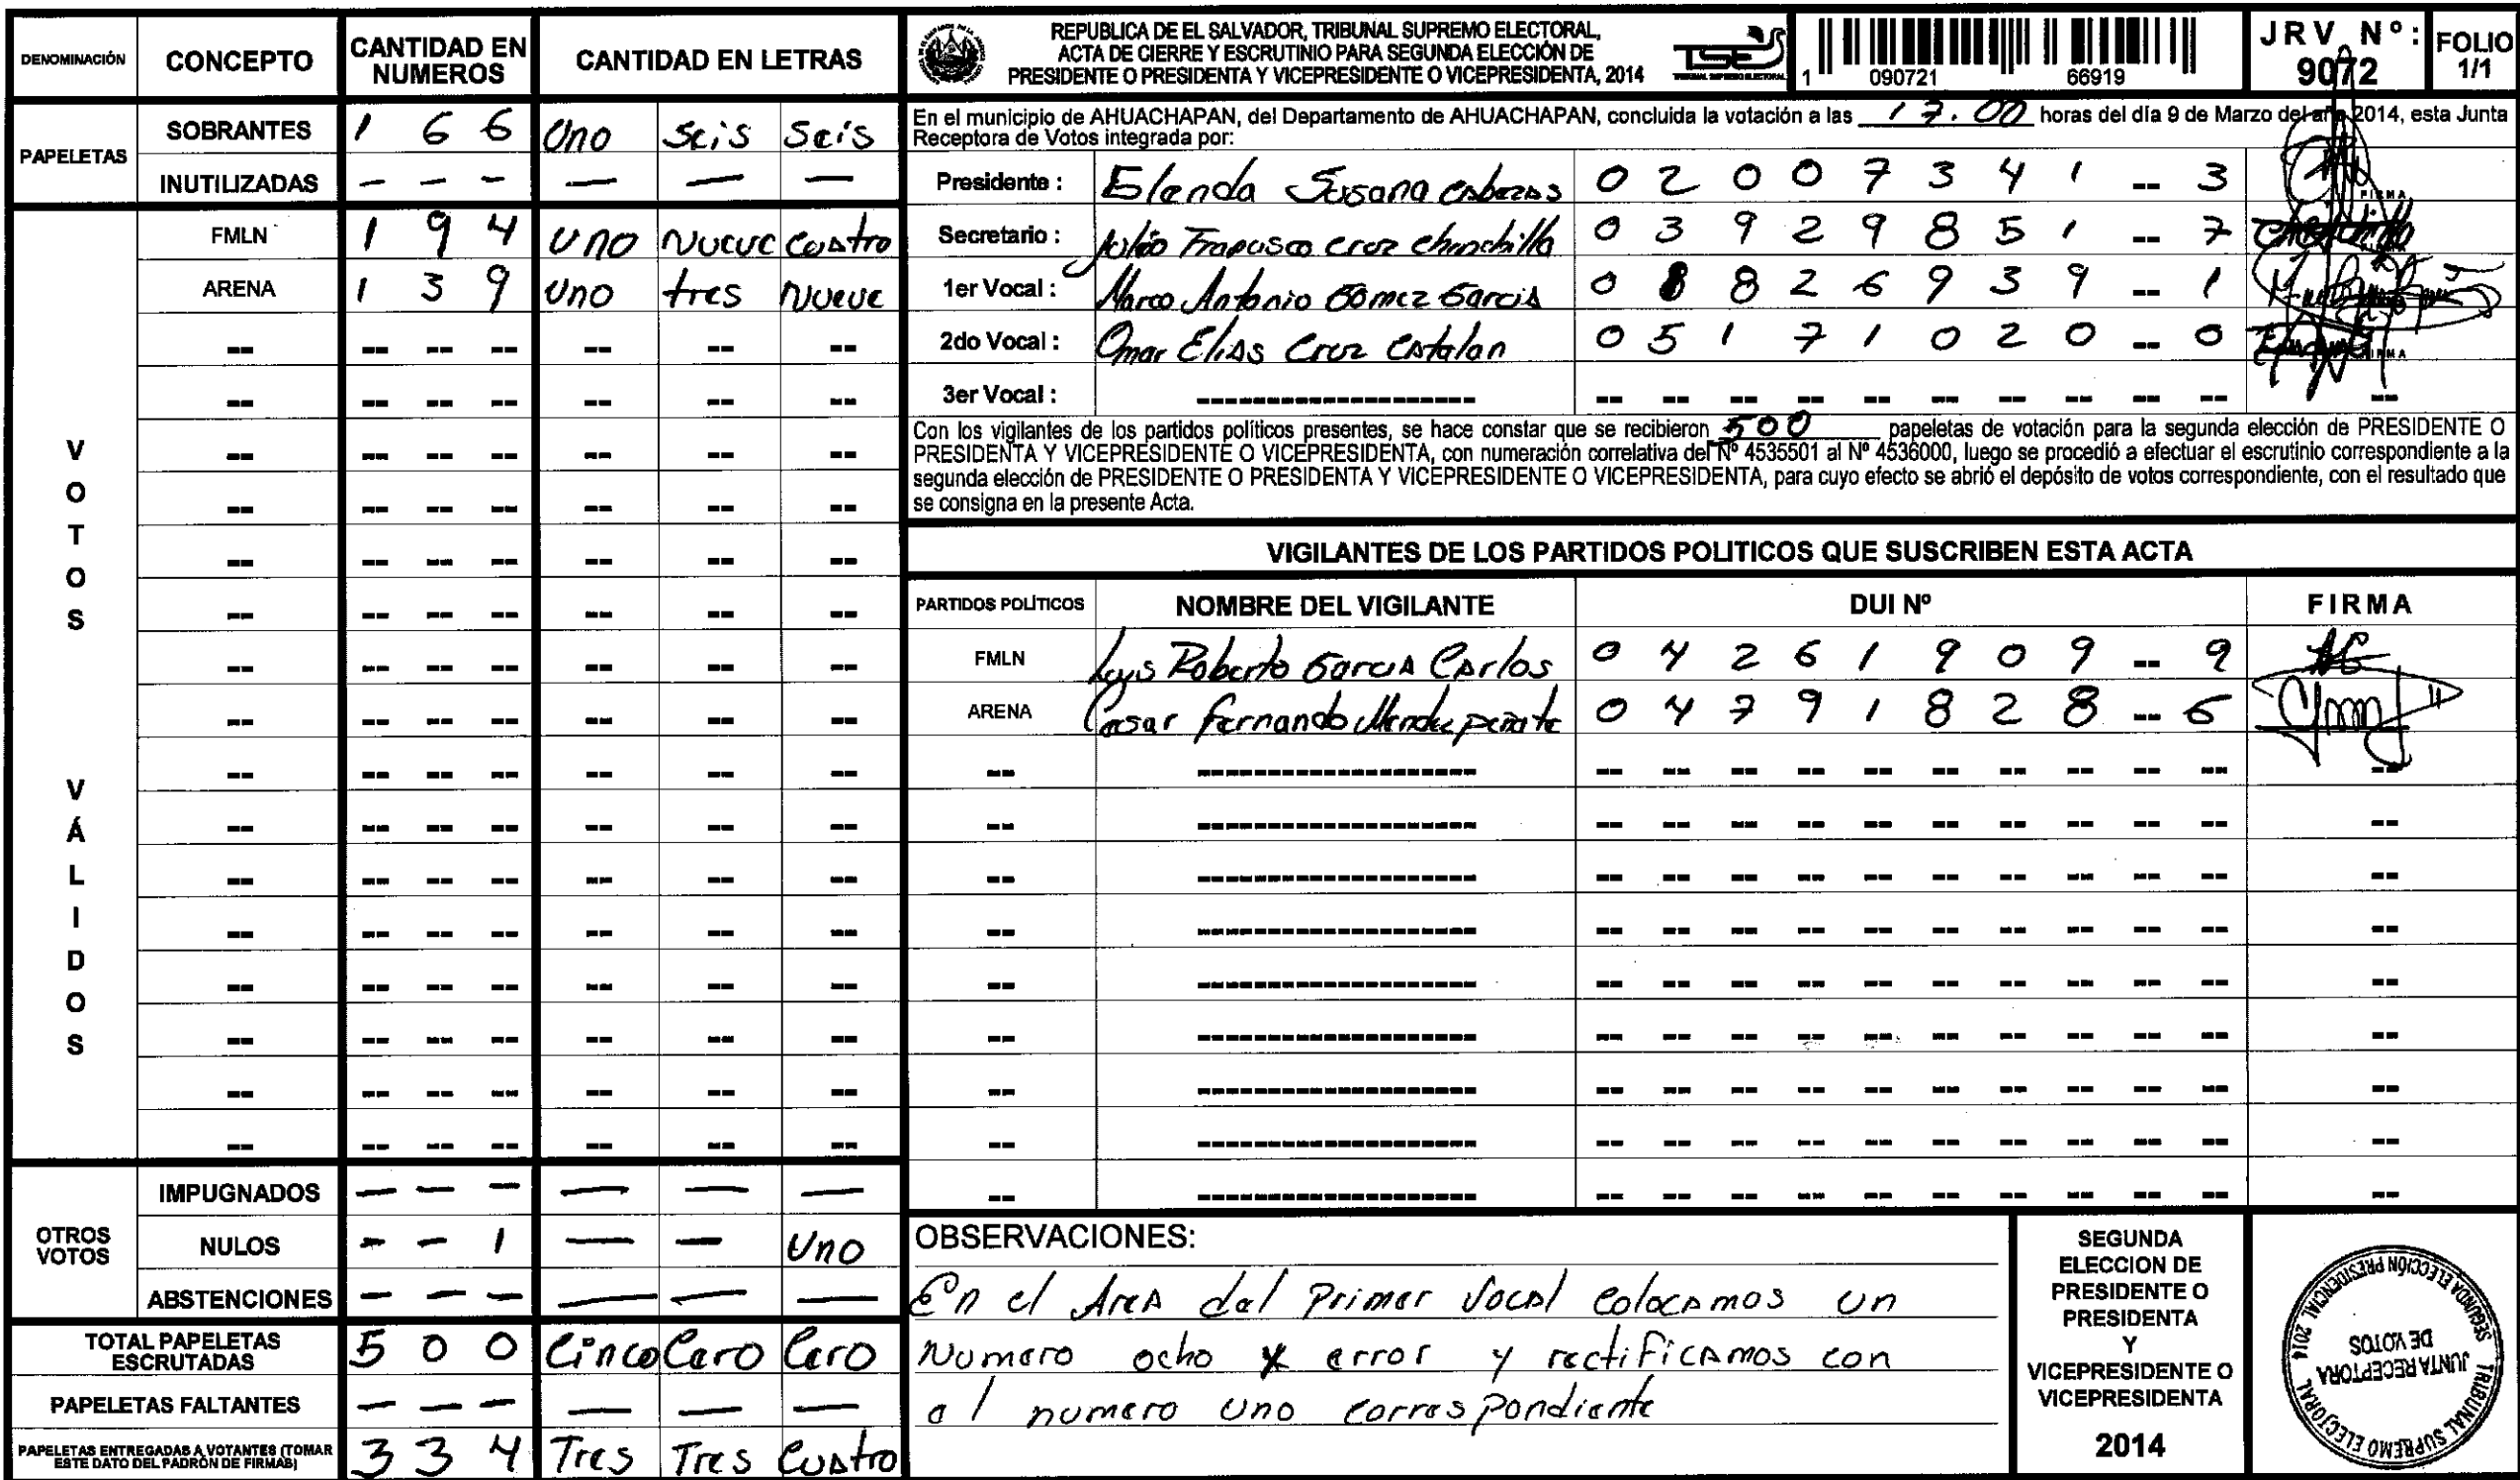 DENOMINACIÓN CONCEPTO CANTIDAD EN NUMEROS CANTIDAD EN LETRAS
PAPELETAS
SOBRANTES 1 6 6 Uno Seis Seis
INUTILIZADAS — — — — — —
VOTOS VÁLIDOS
FMLN 1 9 4 Uno Nueve Cuatro
ARENA 1 3 9 Uno tres Nueve
OTROS VOTOS
IMPUGNADOS — — — — — —
NULOS — — 1 — — Uno
ABSTENCIONES — — — — — —
TOTAL PAPELETAS ESCRUTADAS 5 0 0 Cinco Cero Cero
PAPELETAS FALTANTES — — — — — —
PAPELETAS ENTREGADAS A VOTANTES (TOMAR ESTE DATO DEL PADRÓN DE FIRMAS) 3 3 4 Tres Tres Cuatro
REPUBLICA DE EL SALVADOR, TRIBUNAL SUPREMO ELECTORAL,
ACTA DE CIERRE Y ESCRUTINIO PARA SEGUNDA ELECCIÓN DE
PRESIDENTE O PRESIDENTA Y VICEPRESIDENTE O VICEPRESIDENTA, 2014
TSE
TRIBUNAL SUPREMO ELECTORAL
1 090721 66919
JRV Nº: 9072
FOLIO 1/1
En el municipio de AHUACHAPAN, del Departamento de AHUACHAPAN, concluida la votación a las 17.00 horas del día 9 de Marzo del año 2014, esta Junta
Receptora de Votos integrada por:
Presidente : Elenda Susana Cabezas 0 2 0 0 7 3 4 1 -- 3 FIRMA
Secretario : Julio Francisco Cruz Chinchilla 0 3 9 2 9 8 5 1 -- 7
1er Vocal : Marco Antonio Gomez Garcia 0 8 2 6 9 3 9 -- 1
2do Vocal : Omar Elias Cruz Catalan 0 5 1 7 1 0 2 0 -- 0 FIRMA
3er Vocal :
Con los vigilantes de los partidos políticos presentes, se hace constar que se recibieron 500 papeletas de votación para la segunda elección de PRESIDENTE O
PRESIDENTA Y VICEPRESIDENTE O VICEPRESIDENTA, con numeración correlativa del Nº 4535501 al Nº 4536000, luego se procedió a efectuar el escrutinio correspondiente a la
segunda elección de PRESIDENTE O PRESIDENTA Y VICEPRESIDENTE O VICEPRESIDENTA, para cuyo efecto se abrió el depósito de votos correspondiente, con el resultado que
se consigna en la presente Acta.
VIGILANTES DE LOS PARTIDOS POLITICOS QUE SUSCRIBEN ESTA ACTA
PARTIDOS POLÍTICOS NOMBRE DEL VIGILANTE DUI Nº FIRMA
FMLN Luis Roberto Garcia Carlos 0 4 2 6 1 9 0 9 -- 9
ARENA Cesar Fernando Mendez peñate 0 4 7 9 1 8 2 8 -- 6
OBSERVACIONES:
En el Area del Primer Vocal Colocamos un
Numero ocho x error y rectificamos con
el numero uno correspondiente
SEGUNDA
ELECCION DE
PRESIDENTE O
PRESIDENTA
Y
VICEPRESIDENTE O
VICEPRESIDENTA
2014
SEGUNDA ELECCIÓN PRESIDENCIAL 2014
JUNTA RECEPTORA
DE VOTOS
TRIBUNAL SUPREMO ELECTORAL